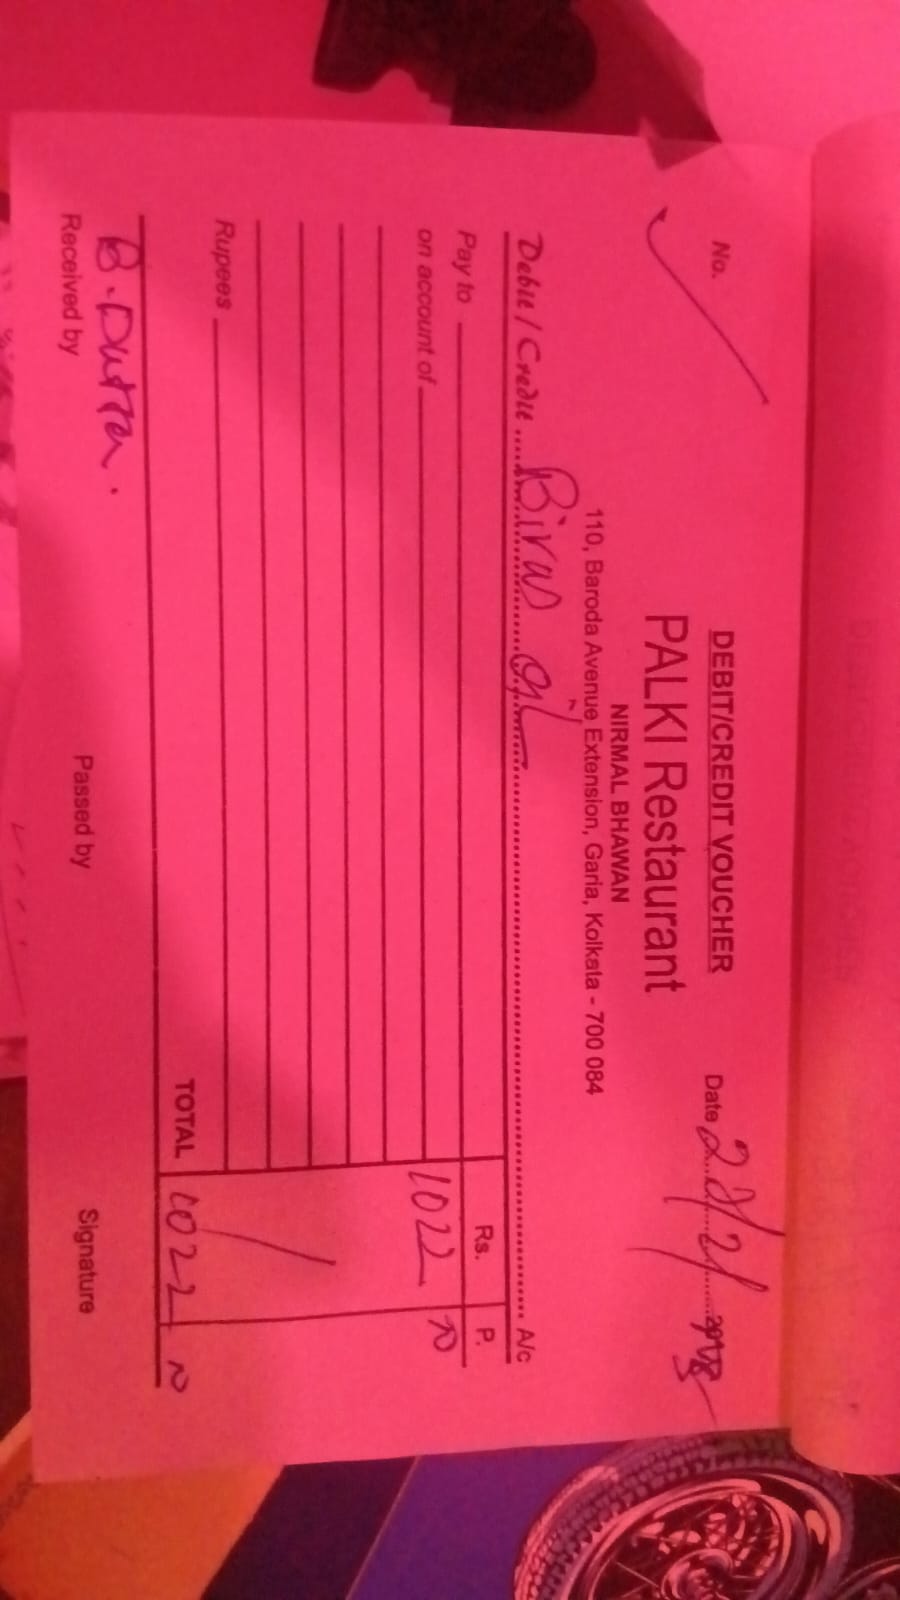 DEBIT/CREDIT VOUCHER
No.
Date 22/2/
PALKI Restaurant
NIRMAL BHAWAN
110, Baroda Avenue Extension, Garia, Kolkata - 700 084
Debit / Credit ..... A/c
Pay to
Rs. P.
on account of 1022
Rupees
TOTAL 1022
B. Dutta.
Received by Passed by Signature